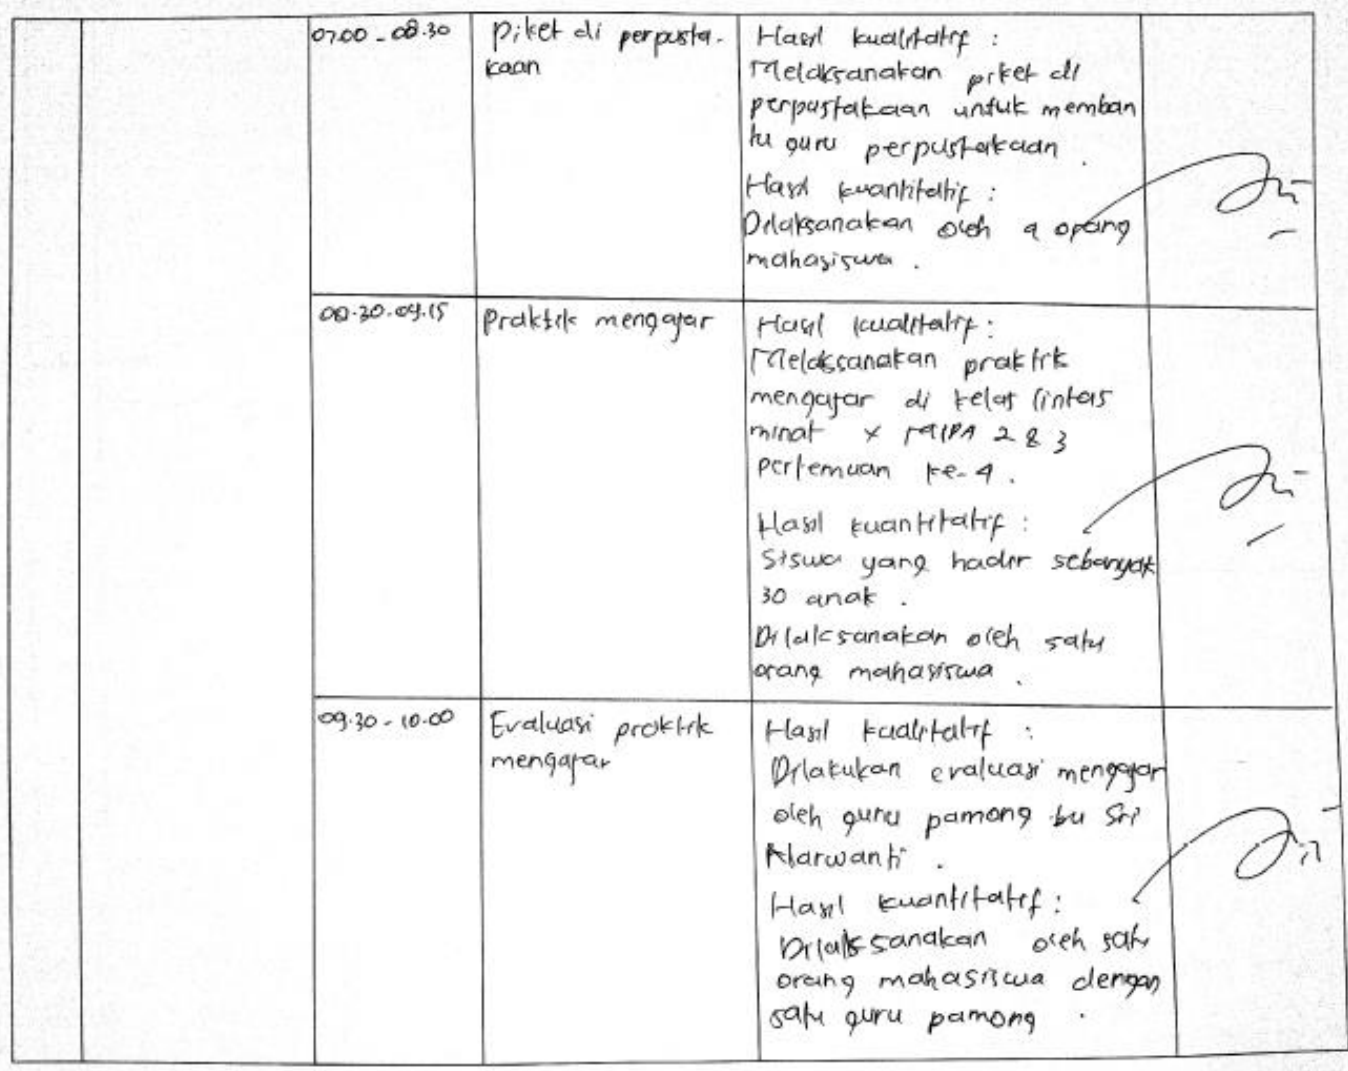 07.00 - 08.30
Piket di perpusta-
kaan
Hasil kualitatif :
Melaksanakan piket di
perpustakaan untuk memban
tu guru perpustakaan .
Hasil kuantitatif :
Dilaksanakan oleh 4 orang
mahasiswa .
08.30-09.15
Praktik mengajar
Hasil kualitatif :
Melaksanakan praktik
mengajar di kelas lintas
minat X MIPA 2 & 3
pertemuan ke-4 .
Hasil kuantitatif :
Siswa yang hadir sebanyak
30 anak .
Dilaksanakan oleh satu
orang mahasiswa .
09.30 - 10.00
Evaluasi praktik
mengajar
Hasil kualitatif :
Dilakukan evaluasi mengajar
oleh guru pamong bu Sri
Marwanti .
Hasil kuantitatif :
Dilaksanakan oleh satu
orang mahasiswa dengan
satu guru pamong .